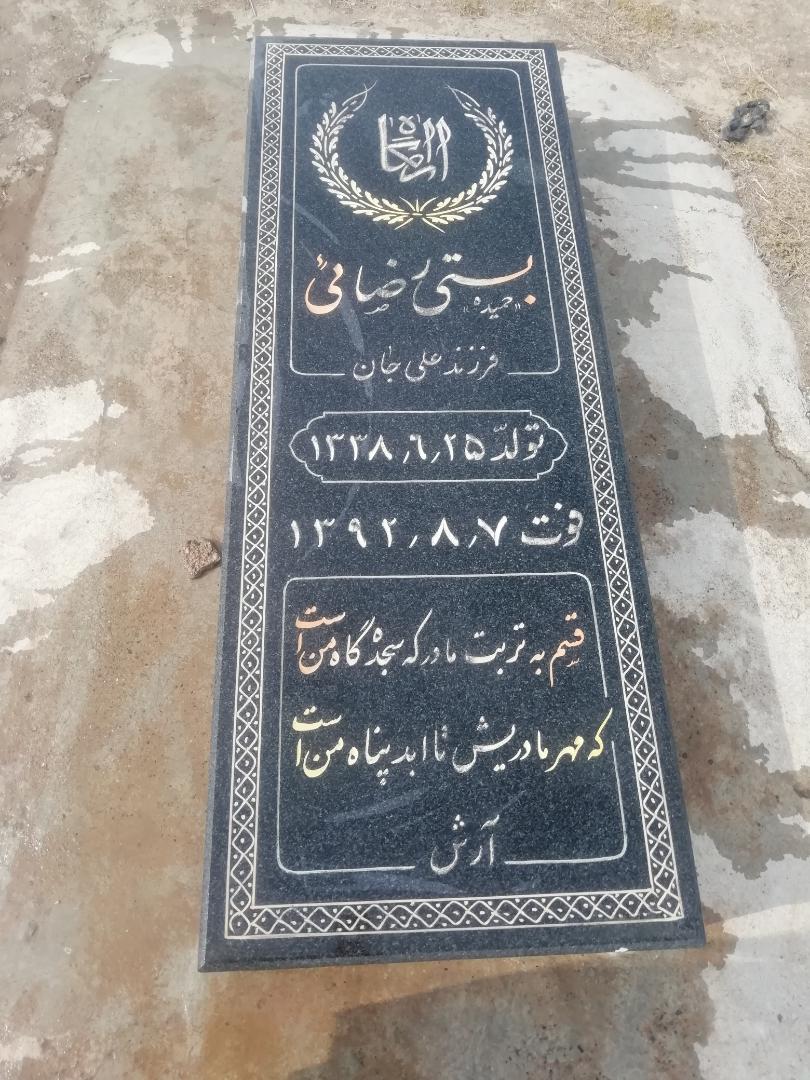 آرامگاه
بستی رضامی
«حمیده»
فرزند علی جان
تولد ۱۳۳۸٫۶٫۲۵
فوت ۱۳۹۲٫۸٫۷
قسم به تربت مادر که سجده گاه من است
که مهر مادریش تا ابد پناه من است
آرش